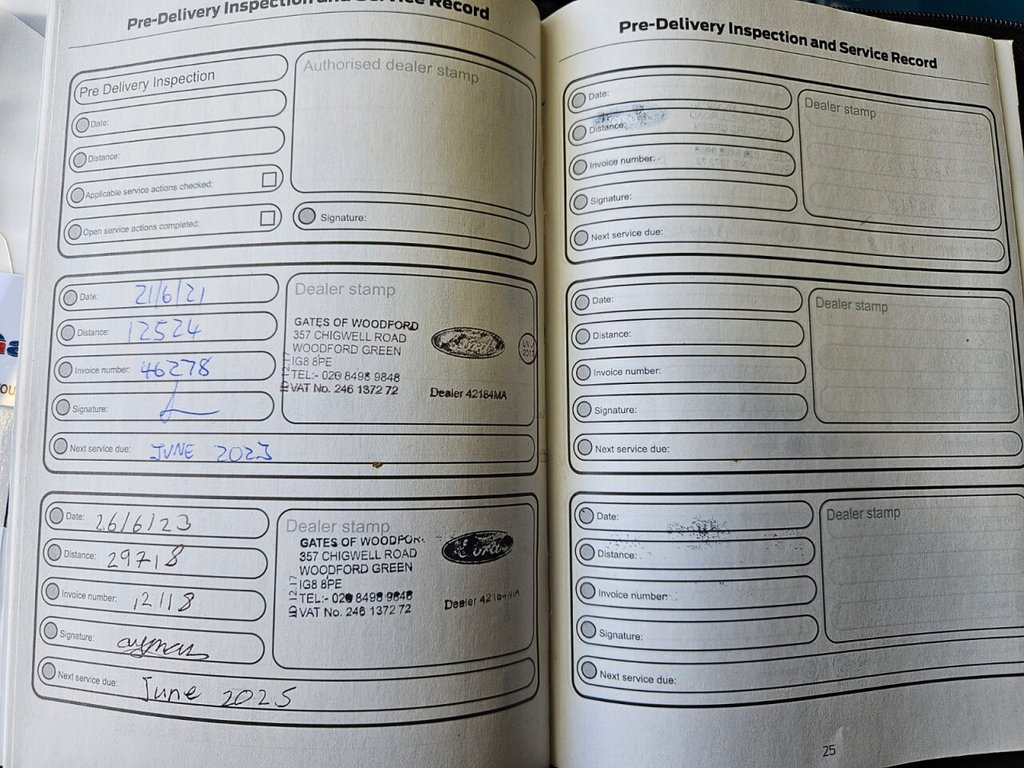 Pre-Delivery Inspection and Service Record
Pre Delivery Inspection
Date:
Distance:
Applicable service actions checked:
Open service actions completed:
Authorised dealer stamp
Signature:
Date: 21/6/21
Distance: 12524
Invoice number: 46278
Signature:
Next service due: JUNE 2023
Dealer stamp
GATES OF WOODFORD
357 CHIGWELL ROAD
WOODFORD GREEN
IG8 8PE
TEL:- 020 8498 9848
VAT No. 246 1372 72
Ford
Dealer 42184MA
ID 12.17
Date: 26/6/23
Distance: 29718
Invoice number: 12118
Signature: ayman
Next service due: June 2025
Dealer stamp
GATES OF WOODFOR
357 CHIGWELL ROAD
WOODFORD GREEN
IG8 8PE
TEL:- 020 8498 9848
VAT No. 246 1372 72
Ford
Dealer 42184MA
ID 12.17
Pre-Delivery Inspection and Service Record
Date:
Distance:
Invoice number:
Signature:
Next service due:
Dealer stamp
Date:
Distance:
Invoice number:
Signature:
Next service due:
Dealer stamp
Date:
Distance:
Invoice number:
Signature:
Next service due:
Dealer stamp
25